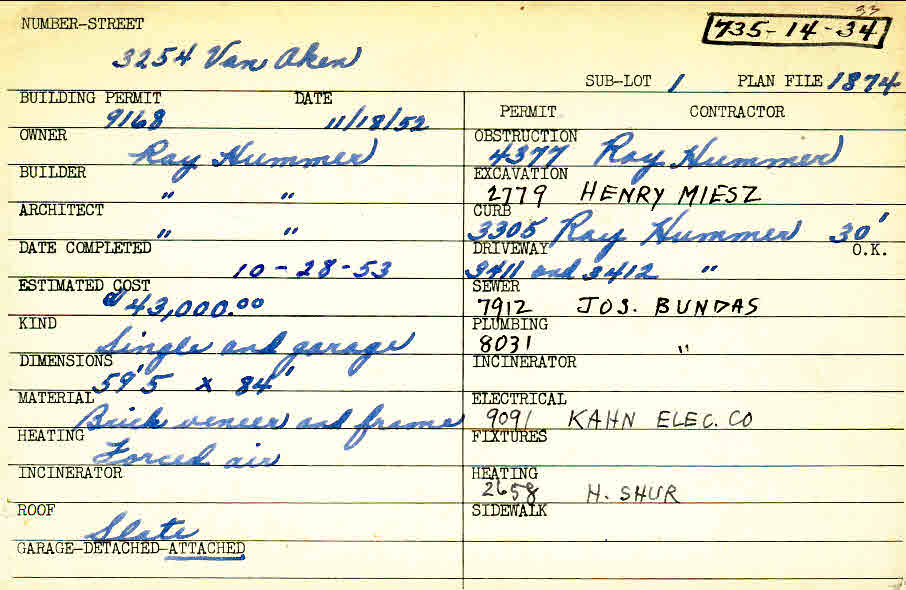 33
NUMBER-STREET 735-14-34
3254 Van Aken
SUB-LOT 1 PLAN FILE 1874
BUILDING PERMIT DATE
9168 11/18/52
OWNER
Ray Hummer
BUILDER
" "
ARCHITECT
" "
DATE COMPLETED
10-28-53
ESTIMATED COST
$43,000.00
KIND
Single and garage
DIMENSIONS
59'5 x 84'
MATERIAL
Brick veneer and frame
HEATING
Forced air
INCINERATOR
ROOF
Slate
GARAGE-DETACHED-ATTACHED
PERMIT CONTRACTOR
OBSTRUCTION
4377 Ray Hummer
EXCAVATION
2779 HENRY MIESZ
CURB
3305 Ray Hummer 30'
DRIVEWAY O.K.
3411 and 3412 "
SEWER
7912 JOS. BUNDAS
PLUMBING
8031 "
INCINERATOR
ELECTRICAL
9091 KAHN ELEC. CO
FIXTURES
HEATING
2658 H. SHUR
SIDEWALK